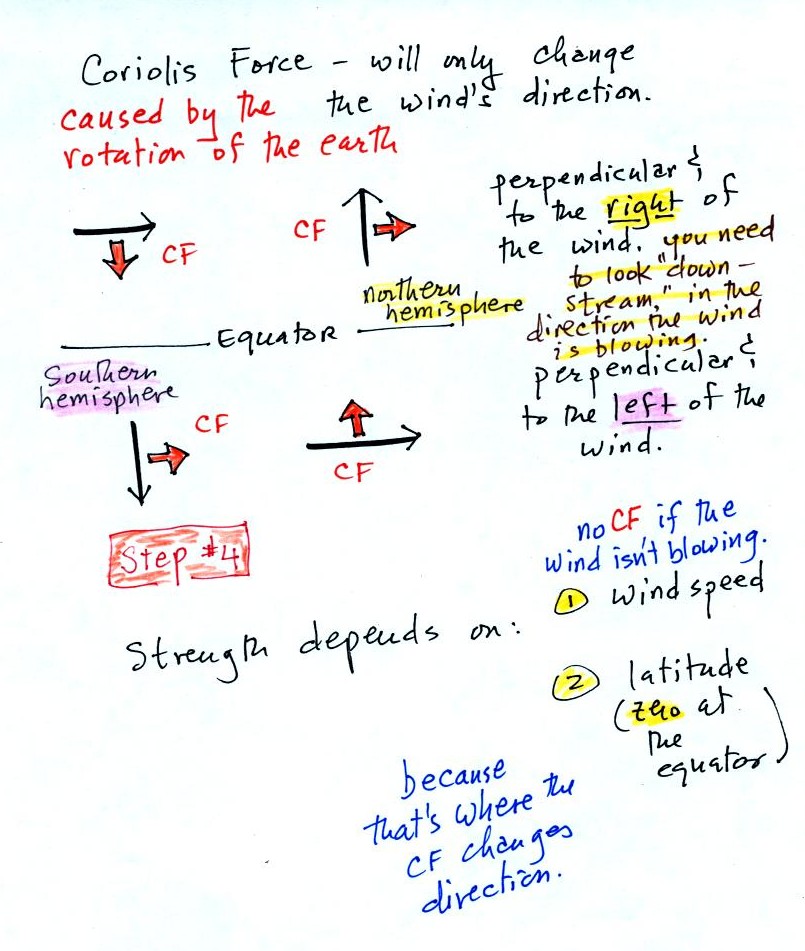 Coriolis Force - will only change
the wind's direction.
caused by the
rotation of the earth
CF
CF
perpendicular &
to the right of
the wind. you need
to look "down-
stream," in the
direction the wind
is blowing.
northern
hemisphere
Equator
Southern
hemisphere
perpendicular &
to the left of the
wind.
CF
CF
Step #4
no CF if the
wind isn't blowing.
Strength depends on:
1 wind speed
2 latitude
(zero at
the
equator)
because
that's where the
CF changes
direction.